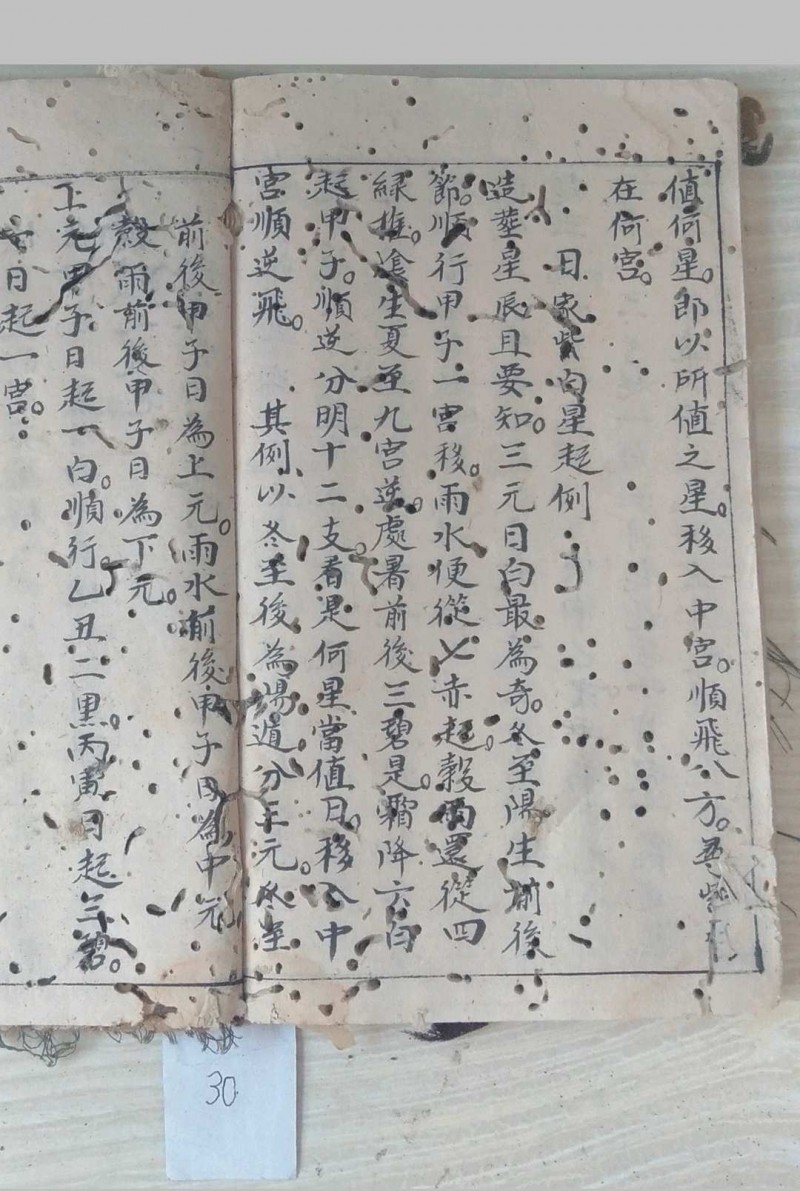 值何星。即以所值之星。移入中宮。順飛八方。尋紫
在何宮。
日家紫白星起例
造塟星辰且要知。三元日白最為奇。冬至陽生前後
節。順行甲子一宮移。雨水便從七赤起。穀雨還從四
緑推。陰生夏至九宮逆。處暑前後三碧是。霜降六白
起甲子。順逆分明十二支。看是何星當值日。移入中
宮順逆飛。其例以冬至後為陽遁。分三元。冬至
前後甲子日為上元。雨水前後甲子日為中元
穀雨前後甲子日為下元。
上元甲子日起一白。順行。乙丑二黒。丙寅日起三碧。
日起一宮。
30